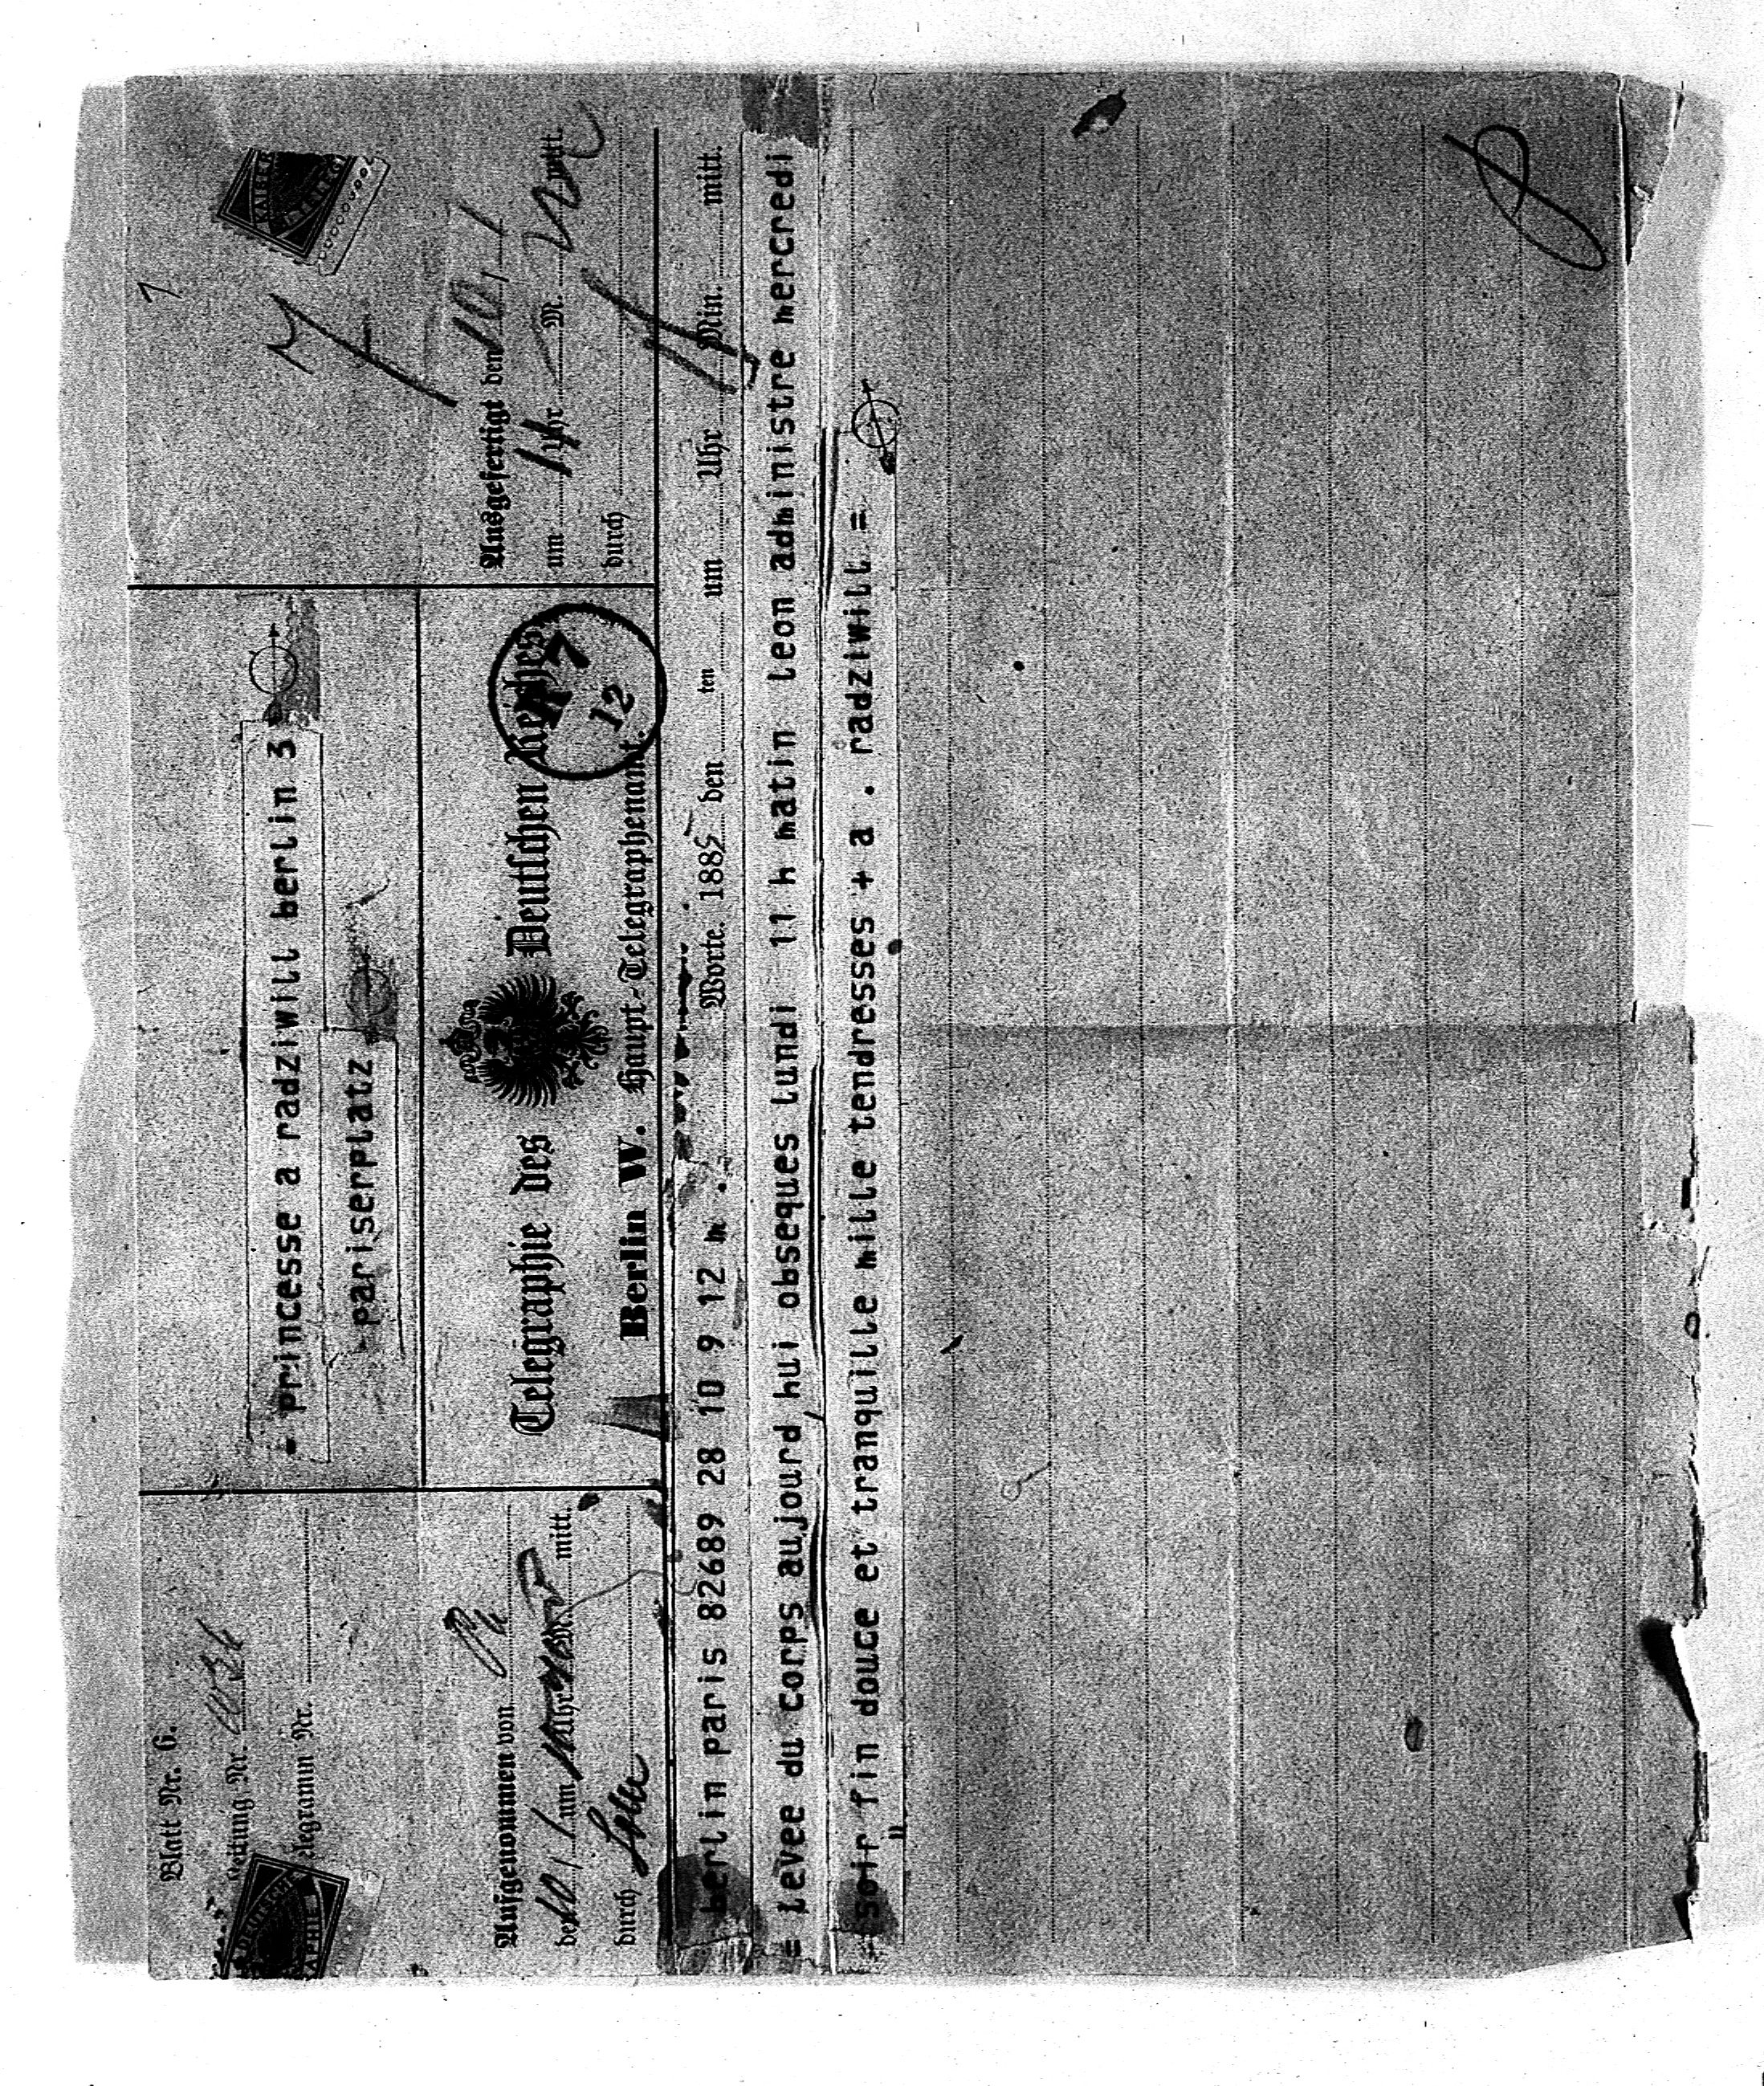 Blatt Nr. 6.
Leitung Nr.
Telegramm Nr.
princesse a radziwill berlin 3
pariserplatz
Aufgenommen von
den 10/1 um Uhr M. mitt.
durch
Telegraphie des Deutschen Reiches
Berlin W. Haupt-Telegraphenamt.
7
12
Ausgefertigt den 10/1
um 11 Uhr M. mitt.
durch
berlin paris 82689 28 10 9 12 m . Worte. 1885 den ten um Uhr Min. mitt.
= levee du corps aujourd hui obseques lundi 11 h matin leon administre mercredi
soir fin douce et tranquille mille tendresses + a . radziwill =